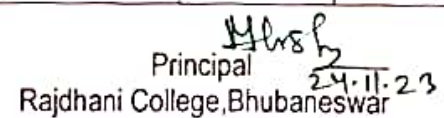 Principal
24.11.23
Rajdhani College,Bhubaneswar